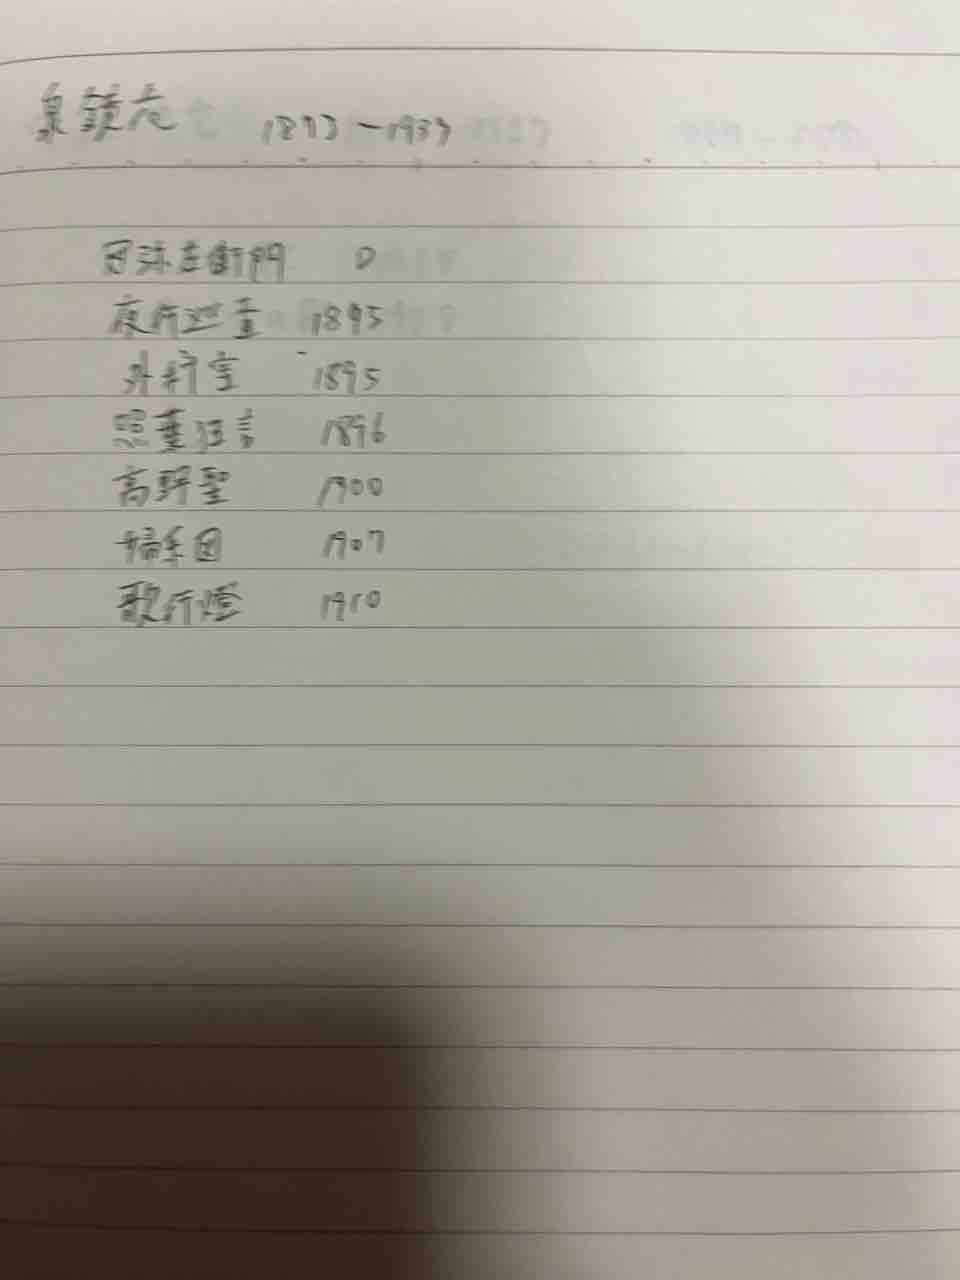 泉鏡花 1873-1939
冠弥左衛門 D
夜行巡査 1895
外科室 1895
照葉狂言 1896
高野聖 1900
婦系図 1907
歌行燈 1910